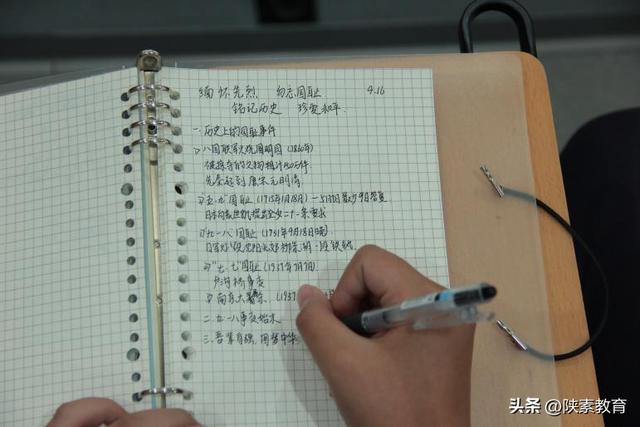 缅怀先烈 勿忘国耻 4.16
铭记历史 珍爱和平
一、历史上的国耻事件
1) 八国联军火烧圆明园 (1860年)
被掠夺的文物粗计150万件
先秦起到唐宋元明清
2) 五·九"国耻 (1915年1月18日)
日本向袁世凯提出企业二十一条要求
3) 九一八"国耻 (1931年9月18日晚)
4) "七·七"国耻 (1937年7月7日)
卢沟桥事变
5) 南京大屠杀 (1937
二、九一八事变始末
三、吾辈自强,
头条 @陕素教育